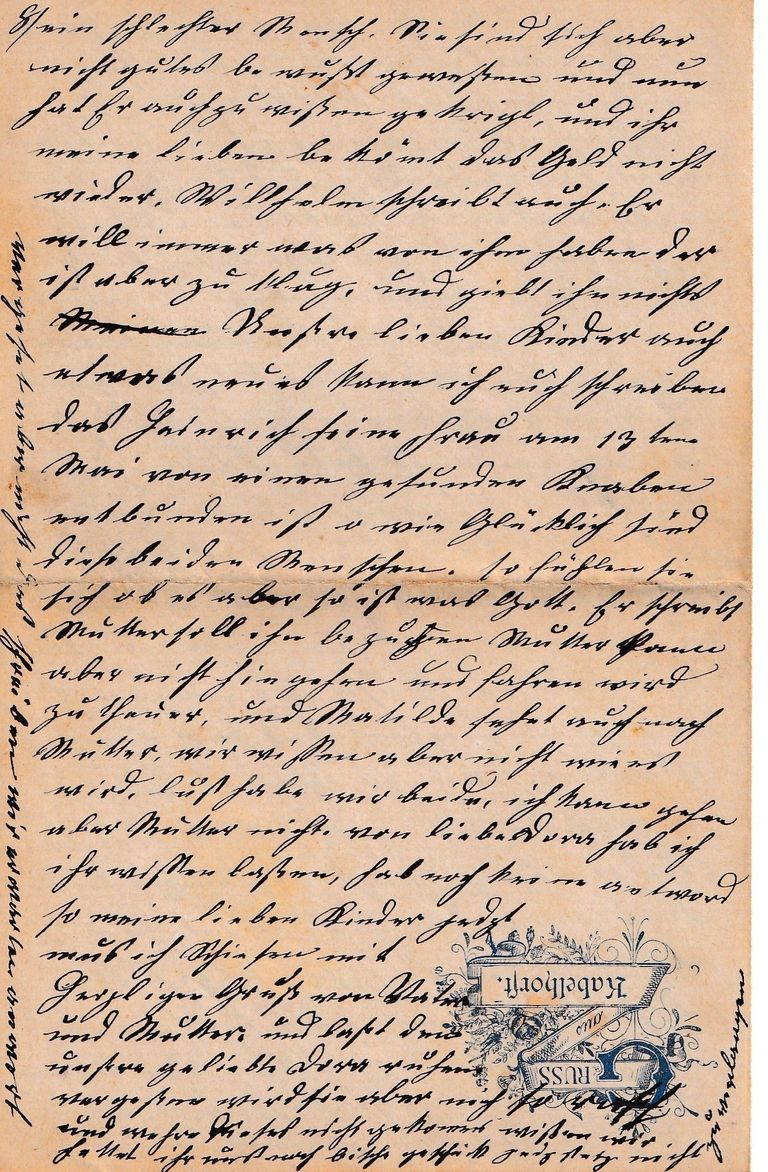 ein schlechter Mensch. Sie sind sich aber
nicht gutes bewußt geweßen und nun
hat Er auch zu wißen gekrigt, und ihr
meine lieben bekömt das Geld nicht
wieder. Willhelm schreibt auch. Er
will immer was von ihm haben der
ist aber zu klug, und giebt ihn nichts
Unßre lieben Kinder auch
etwas neues kann ich euch schreiben
das Heinrich seine Frau am 13 ten
Mai von einen gesunden Knaben
entbunden ist o wie Glücklich sind
diese beiden Menschen. so fühlen sie
sich ob es aber so ist was Gott. Er schreibt
Mutter soll ihn bezuchen Mutter kann
aber nicht hingehen und fahren wird
zu theuer, und Matilde sehnt auch nach
Mutter, wir wissen aber nicht wie es
wird, lust habe wir beide, ich kann gehen
aber Mutter nicht. von liebe Dora hab ich
ihr wissen laßen, hab noch keine antword
so meine lieben Kinder jedzt
mus ich Schiesen mit
Herzliger Gruß von Vater
und Mutter. und laßt den
unsre geliebte Dora ruhen
vergeßen wird sie aber nich so
und wehre dieses nicht gekomen wißen wir
hettet ihr uns noch bische geschikt nicht
Gruss
aus
Kabelhorst.